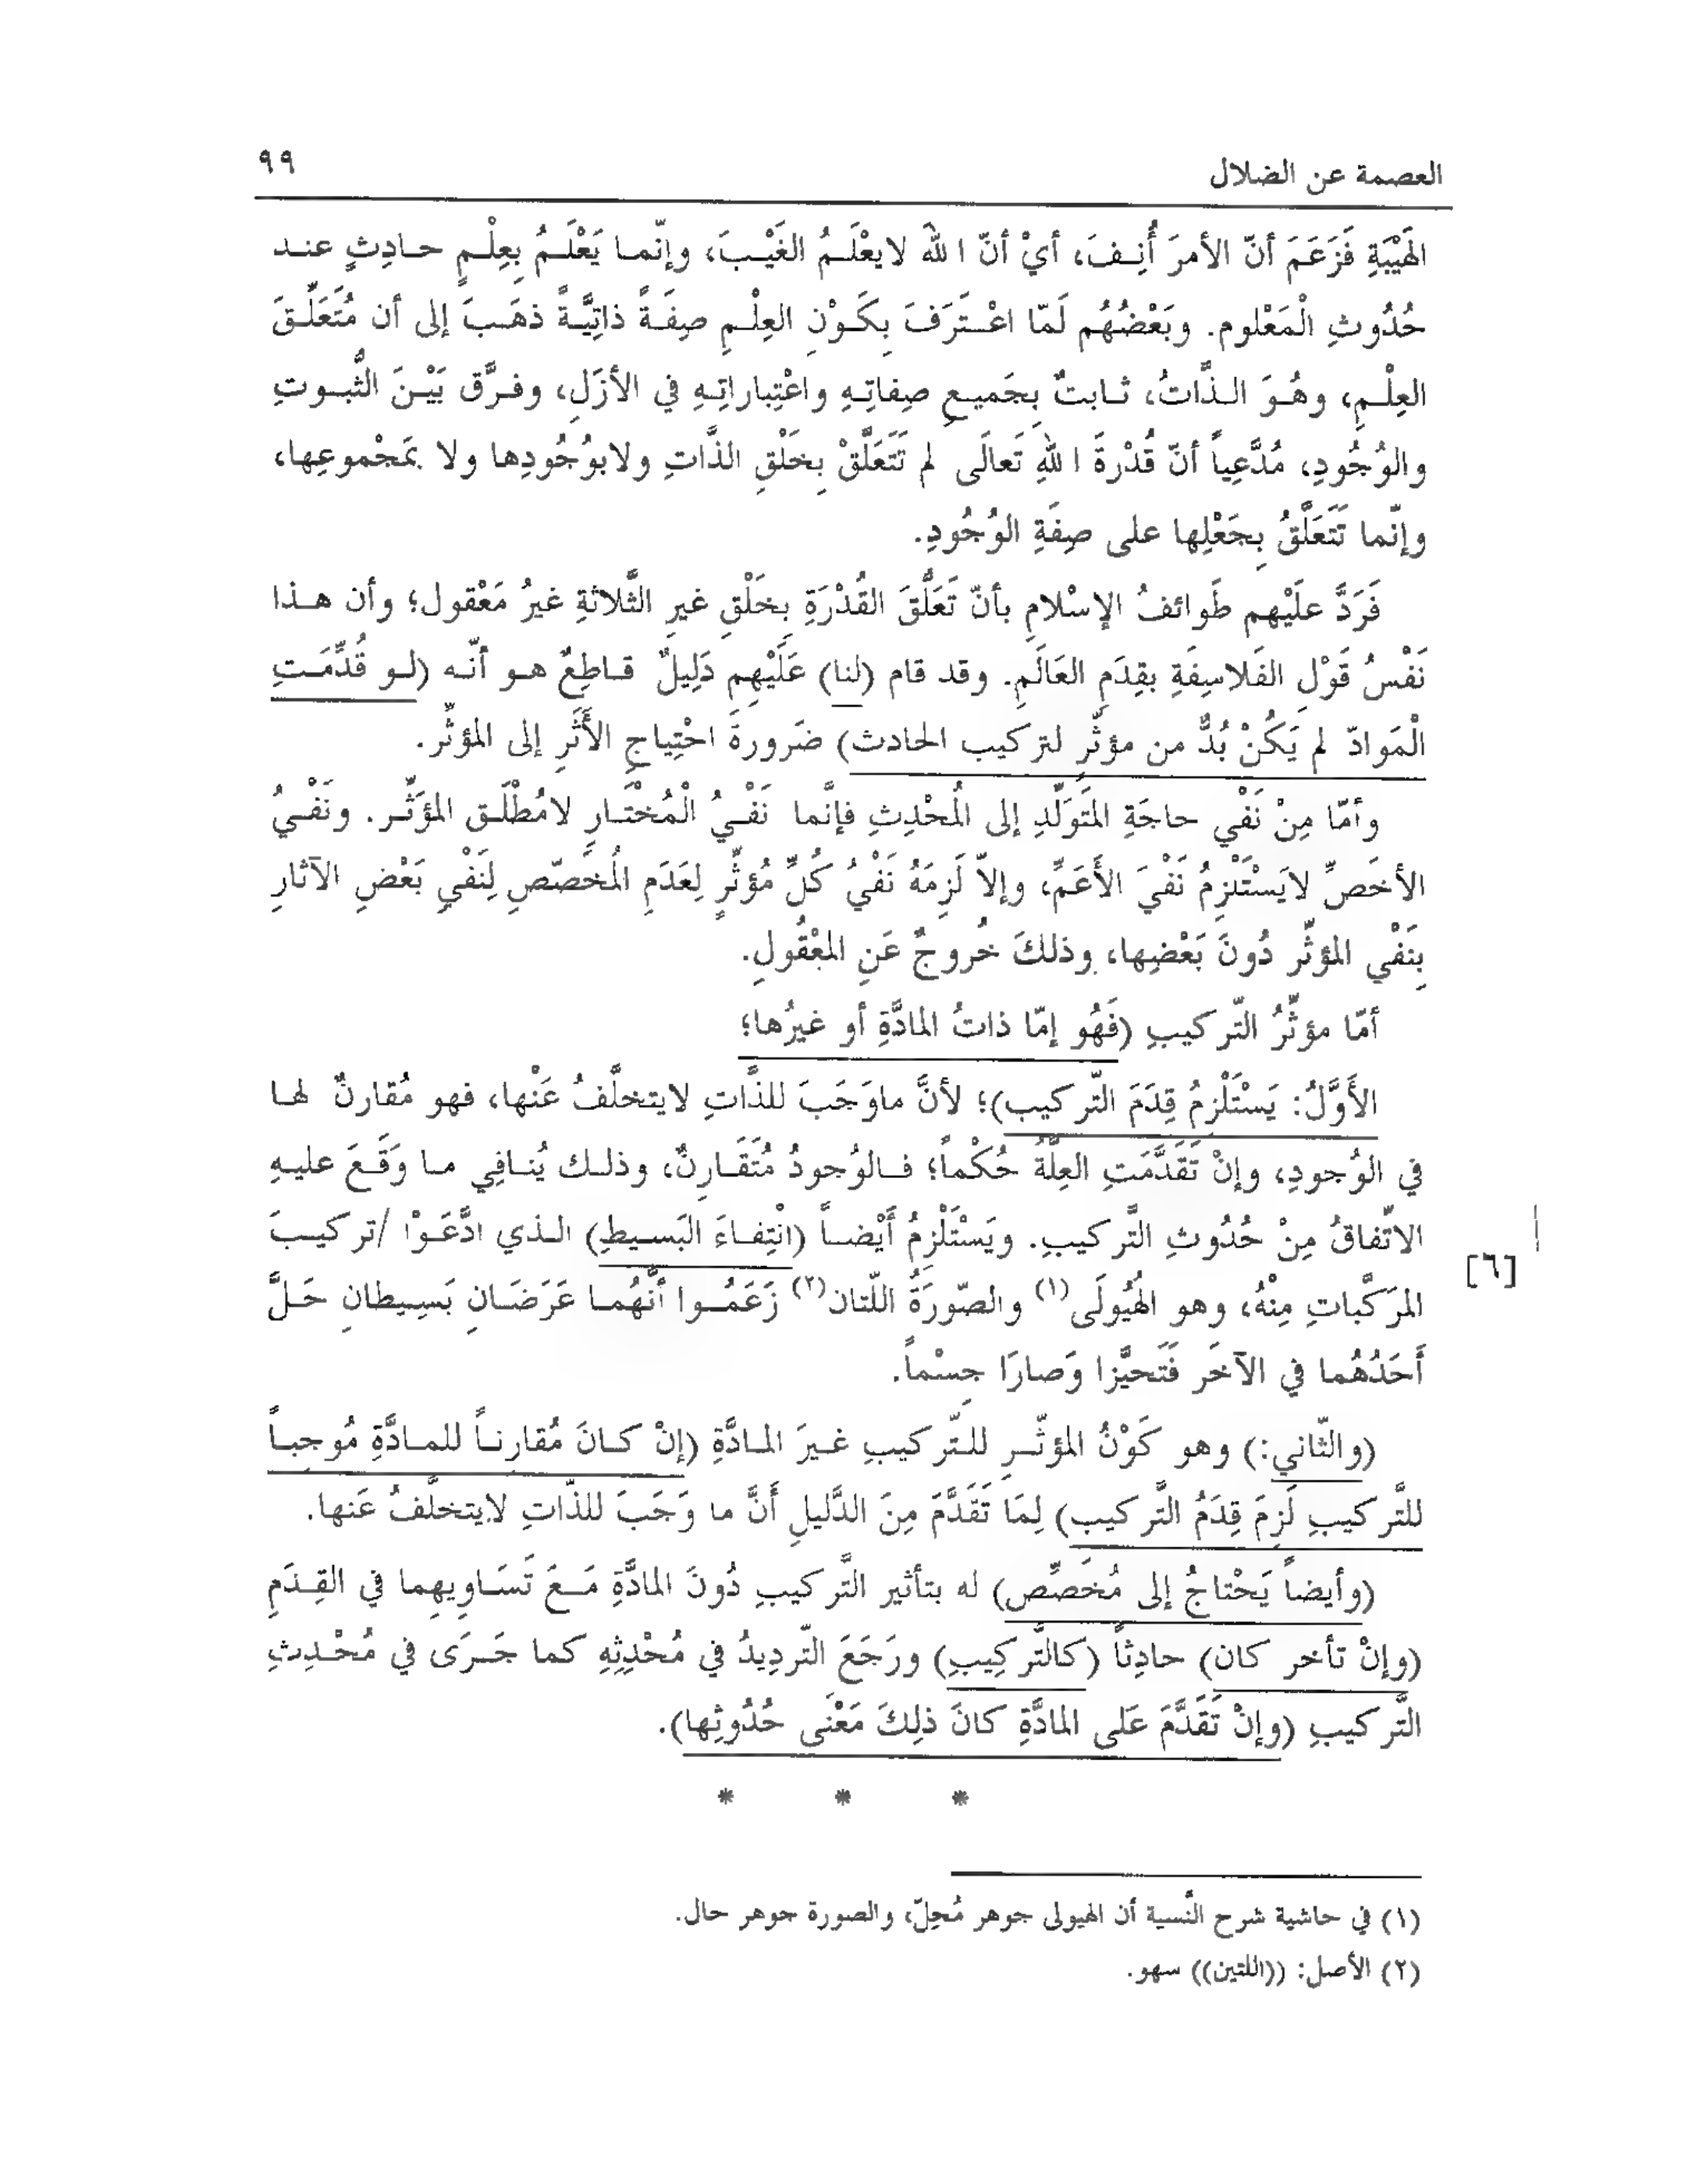 العصمة عن الضلال ٩٩
الهَيْبَةِ فَزَعَمَ أنّ الأمرَ أُنِفَ، أيْ أنّ اللهَ لايعْلَمُ الغَيْبَ، وإنّما يَعْلَمُ بِعِلْمٍ حادِثٍ عند
حُدُوثِ الْمَعْلوم. وبَعْضُهُم لَمّا اعْتَرَفَ بِكَوْنِ العِلْمِ صِفَةً ذاتِيَّةً ذهَبَ إلى أن مُتَعَلَّقَ
العِلْمِ، وهُوَ الذَّاتُ، ثابتٌ بِجَميعِ صِفاتِهِ واعْتِباراتِهِ في الأزَلِ، وفرَّق بَيْنَ الثُّبوتِ
والوُجُودِ، مُدَّعِياً أنّ قُدْرةَ اللهِ تَعالَى لم تَتَعَلَّقْ بِخَلْقِ الذَّاتِ ولابوُجُودِها ولا بمَجْموعِها،
وإنّما تَتَعَلَّقُ بِجَعْلِها على صِفَةِ الوُجُودِ.
فَرَدَّ علَيْهم طَوائفُ الإسْلامِ بأنّ تَعَلُّقَ القُدْرَةِ بِخَلْقِ غيرِ الثَّلاثةِ غيرُ مَعْقول؛ وأن هذا
نَفْسُ قَوْلِ الفَلاسِفَةِ بقِدَمِ العَالَمِ. وقد قام (لنا) عَلَيْهِم دَلِيلٌ قاطِعٌ هو أنّه (لو قُدِّمَتِ
الْمَوادّ لم يَكُنْ بُدٌّ من مؤثِّرٍ لتركيب الحادث) ضَرورةَ احْتِياجِ الأَثَرِ إلى المؤثِّر.
وأمّا مِنْ نَفْي حاجَةِ المتَوَلِّدِ إلى الُمحْدِثِ فإنَّما نَفْيُ الْمُخْتَارِ لامُطْلَق المؤَثِّر. ونَفْيُ
الأخَصِّ لايَسْتَلْزِمُ نَفْيَ الأَعَمِّ، وإلاّ لَزِمَهُ نَفْيُ كُلِّ مُؤثِّرٍ لِعَدَمِ الُمخَصّصِ لِنَفْيِ بَعْضِ الآثارِ
بِنَفْي المؤثِّر دُونَ بَعْضِها، وذلكَ خُروجٌ عَنِ المعْقُولِ.
أمّا مؤثِّرُ التّركيبِ (فَهُو إمّا ذاتُ المادَّةِ أو غيرُها؛
الأَوَّلُ: يَسْتَلْزِمُ قِدَمَ التّركيب)؛ لأنَّ ماوَجَبَ للذَّاتِ لايتخلَّفُ عَنْها، فهو مُقارنٌ لها
في الوُجودِ، وإنْ تَقَدَّمَتِ العِلَّةُ حُكْماً؛ فالوُجودُ مُتَقَارِنٌ، وذلك يُنافِي ما وَقَعَ عليهِ
الاتّفاقُ مِنْ حُدُوثِ التَّركيبِ. ويَسْتَلْزِمُ أَيْضاً (انْتِفاءَ البَسيطِ) الذي ادَّعَوْا /تركيبَ
[٦]
المرَكَّباتِ مِنْهُ، وهو الهُيُولَى(١) والصّورَةُ اللّتان(٢) زَعَمُوا أنَّهُما عَرَضَانِ بَسِيطانِ حَلَّ
أَحَدُهُما في الآخَر فَتَحيَّزا وَصارَا جِسْماً.
(والثّاني:) وهو كَوْنُ المؤثّرِ للتّركيبِ غيرَ المادَّةِ (إنْ كانَ مُقارِناً للمادَّةِ مُوجِباً
للتَّركيبِ لَزِمَ قِدَمُ التَّركيب) لِمَا تَقَدَّمَ مِنَ الدَّليلِ أَنَّ ما وَجَبَ للذّاتِ لايتخلَّفُ عَنها.
(وأيضاً يَحْتاجُ إلى مُخَصِّص) له بتأثير التَّركيبِ دُونَ المادَّةِ مَعَ تَسَاوِيهِما في القِدَمِ
(وإنْ تأخر كان) حادِثاً (كالتَّركِيبِ) ورَجَعَ التّردِيدُ في مُحْدِثِهِ كما جَرَى في مُحْدِثِ
التَّركيبِ (وإنْ تَقَدَّمَ عَلى المادَّةِ كانَ ذلِكَ مَعْنَى حُدُوثِها).
* * *
(١) في حاشية شرح النَّسية أن الهيولى جوهر مُحِلّ، والصورة جوهر حال.
(٢) الأصل: ((اللتين)) سهو.